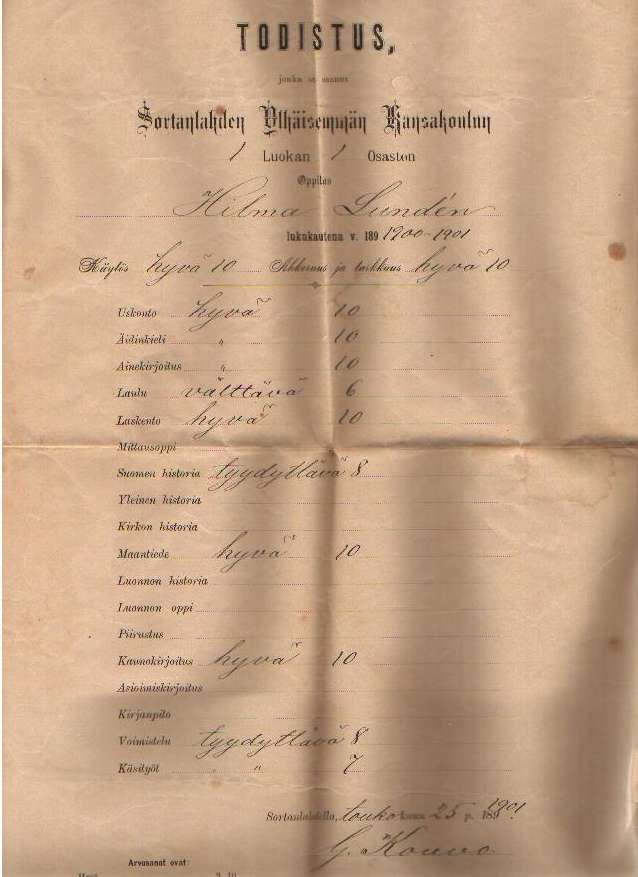 TODISTUS,
jonka on saanut
Sortanlahden Ylhäisemmän Kansakoulun
1 Luokan 1 Osaston
Oppilas
Hilma Lundén
lukukautena v. 189 1900-1901
Käytös hyvä 10 Ahkeruus ja tarkkuus hyvä 10
Uskonto hyvä 10
Äidinkieli " 10
Ainekirjoitus " 10
Laulu välttävä 6
Laskento hyvä 10
Mittausoppi
Suomen historia tyydyttävä 8
Yleinen historia
Kirkon historia
Maantiede hyvä 10
Luonnon historia
Luonnon oppi
Piirustus
Kaunokirjoitus hyvä 10
Asioimiskirjoitus
Kirjanpito
Voimistelu tyydyttävä 8
Käsityöt " " 7
Sortanlahdella, toukokuun 25 p. 189 1901.
G. Kouvo
Arvosanat ovat: